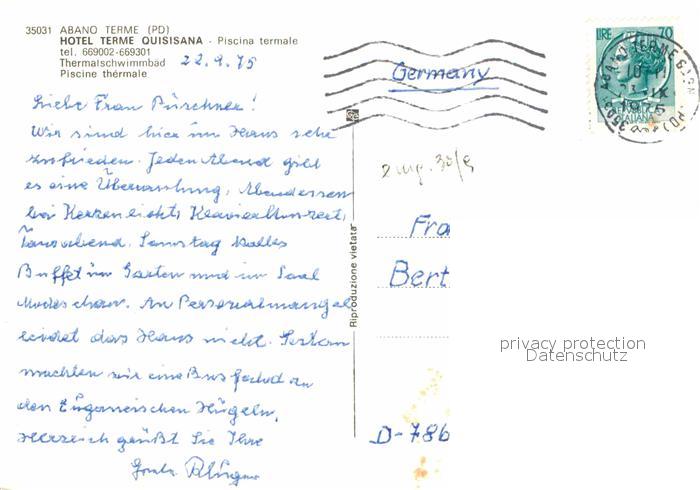 35031 ABANO TERME (PD)
HOTEL TERME QUISISANA - Piscina termale
tel. 669002-669301
Thermalschwimmbad 22.9.75
Piscine thérmale
Liebe Frau Püschner!
Wir sind hier im Haus sehr
zufrieden. Jeden Abend gibt
es eine Überraschung, Abendessen
bei Kerzenlicht, Klavierkonzert,
Tanzabend. Samstag kaltes
Buffet im Garten und im Saal
Modeschau. An Personalmangel
leidet das Haus nicht. Gestern
machten wir eine Busfahrt in
den Euganeischen Hügeln.
Herzlich grüßt Sie Ihre
Riproduzione vietata
Germany
LIRE 70
REPUBBLICA
ITALIANA
ABANO TERME
1975
Fra
Bert
D-786
privacy protection
Datenschutz